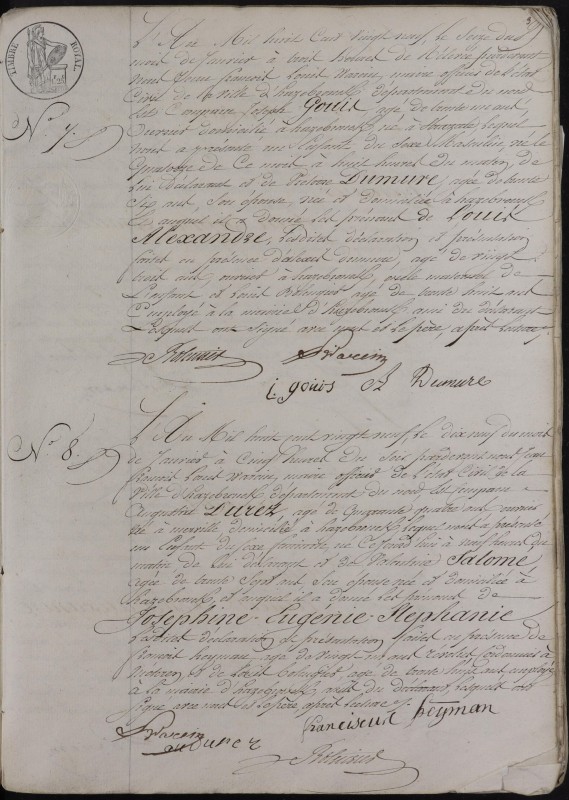 TIMBRE ROYAL
3
L'An Mil huit Cent vingt neuf, le Seize du
mois de Janvier à trois heures de relevée pardevant
nous Jean François Louis Warein, maire officier de l'état
Civil de la Ville d'hazebrouck Département du nord
Est Comparu Joseph Gouis, agé de trente un ans
domicilié à hazebrouck, né à lequel
nous a présenté un Enfant du Sexe Masculin, né le
quatorze de Ce mois à huit heures du matin, de
lui Déclarant et de Victoire Dumure, agée de trente
six ans, Son épouse, née et Domiciliée à hazebrouck
et auquel il a donné les prénoms de Louis
Alexandre, lesdites déclaration et présentation
faites en présence d'alexis dumure, agé de vingt
trois ans, à hazebrouck, oncle maternel de
L'enfant et Louis agé de trente huit ans
Employé à la mairie d'hazebrouck, ami du déclarant
Lesquels ont Signé avec nous et le père, après lecture.
N.° 7.
Warein
j. gouis
A Dumure
N.° 8.
L'An Mil huit cent vingt neuf, le dix neuf du mois
de Janvier à Cinq heures du Soir pardevant nous Jean
François Louis Warein, maire officier de l'état Civil de la
Ville d'hazebrouck Département du nord Est Comparu
Augustin Durez, agé de quarante quatre ans
né à merville domicilié à hazebrouck lequel nous a présenté
un Enfant du Sexe féminin, né Cejourd'hui à neuf heures du
matin de lui déclarant et de Salomé,
agée de trente Sept ans, Son épouse née et Domiciliée à
hazebrouck, et auquel il a donné les prénoms de
Joséphine-Eugénie-Stéphanie,
Lesdites déclaration et présentation faites en présence de
françois heyman, agé de vingt un ans
et de Louis agé de trente huit ans employé
à la mairie d'hazebrouck, amis du déclarant, lesquels ont
Signé avec nous et le père après lecture.
Warein
au Durez
franciscus heyman